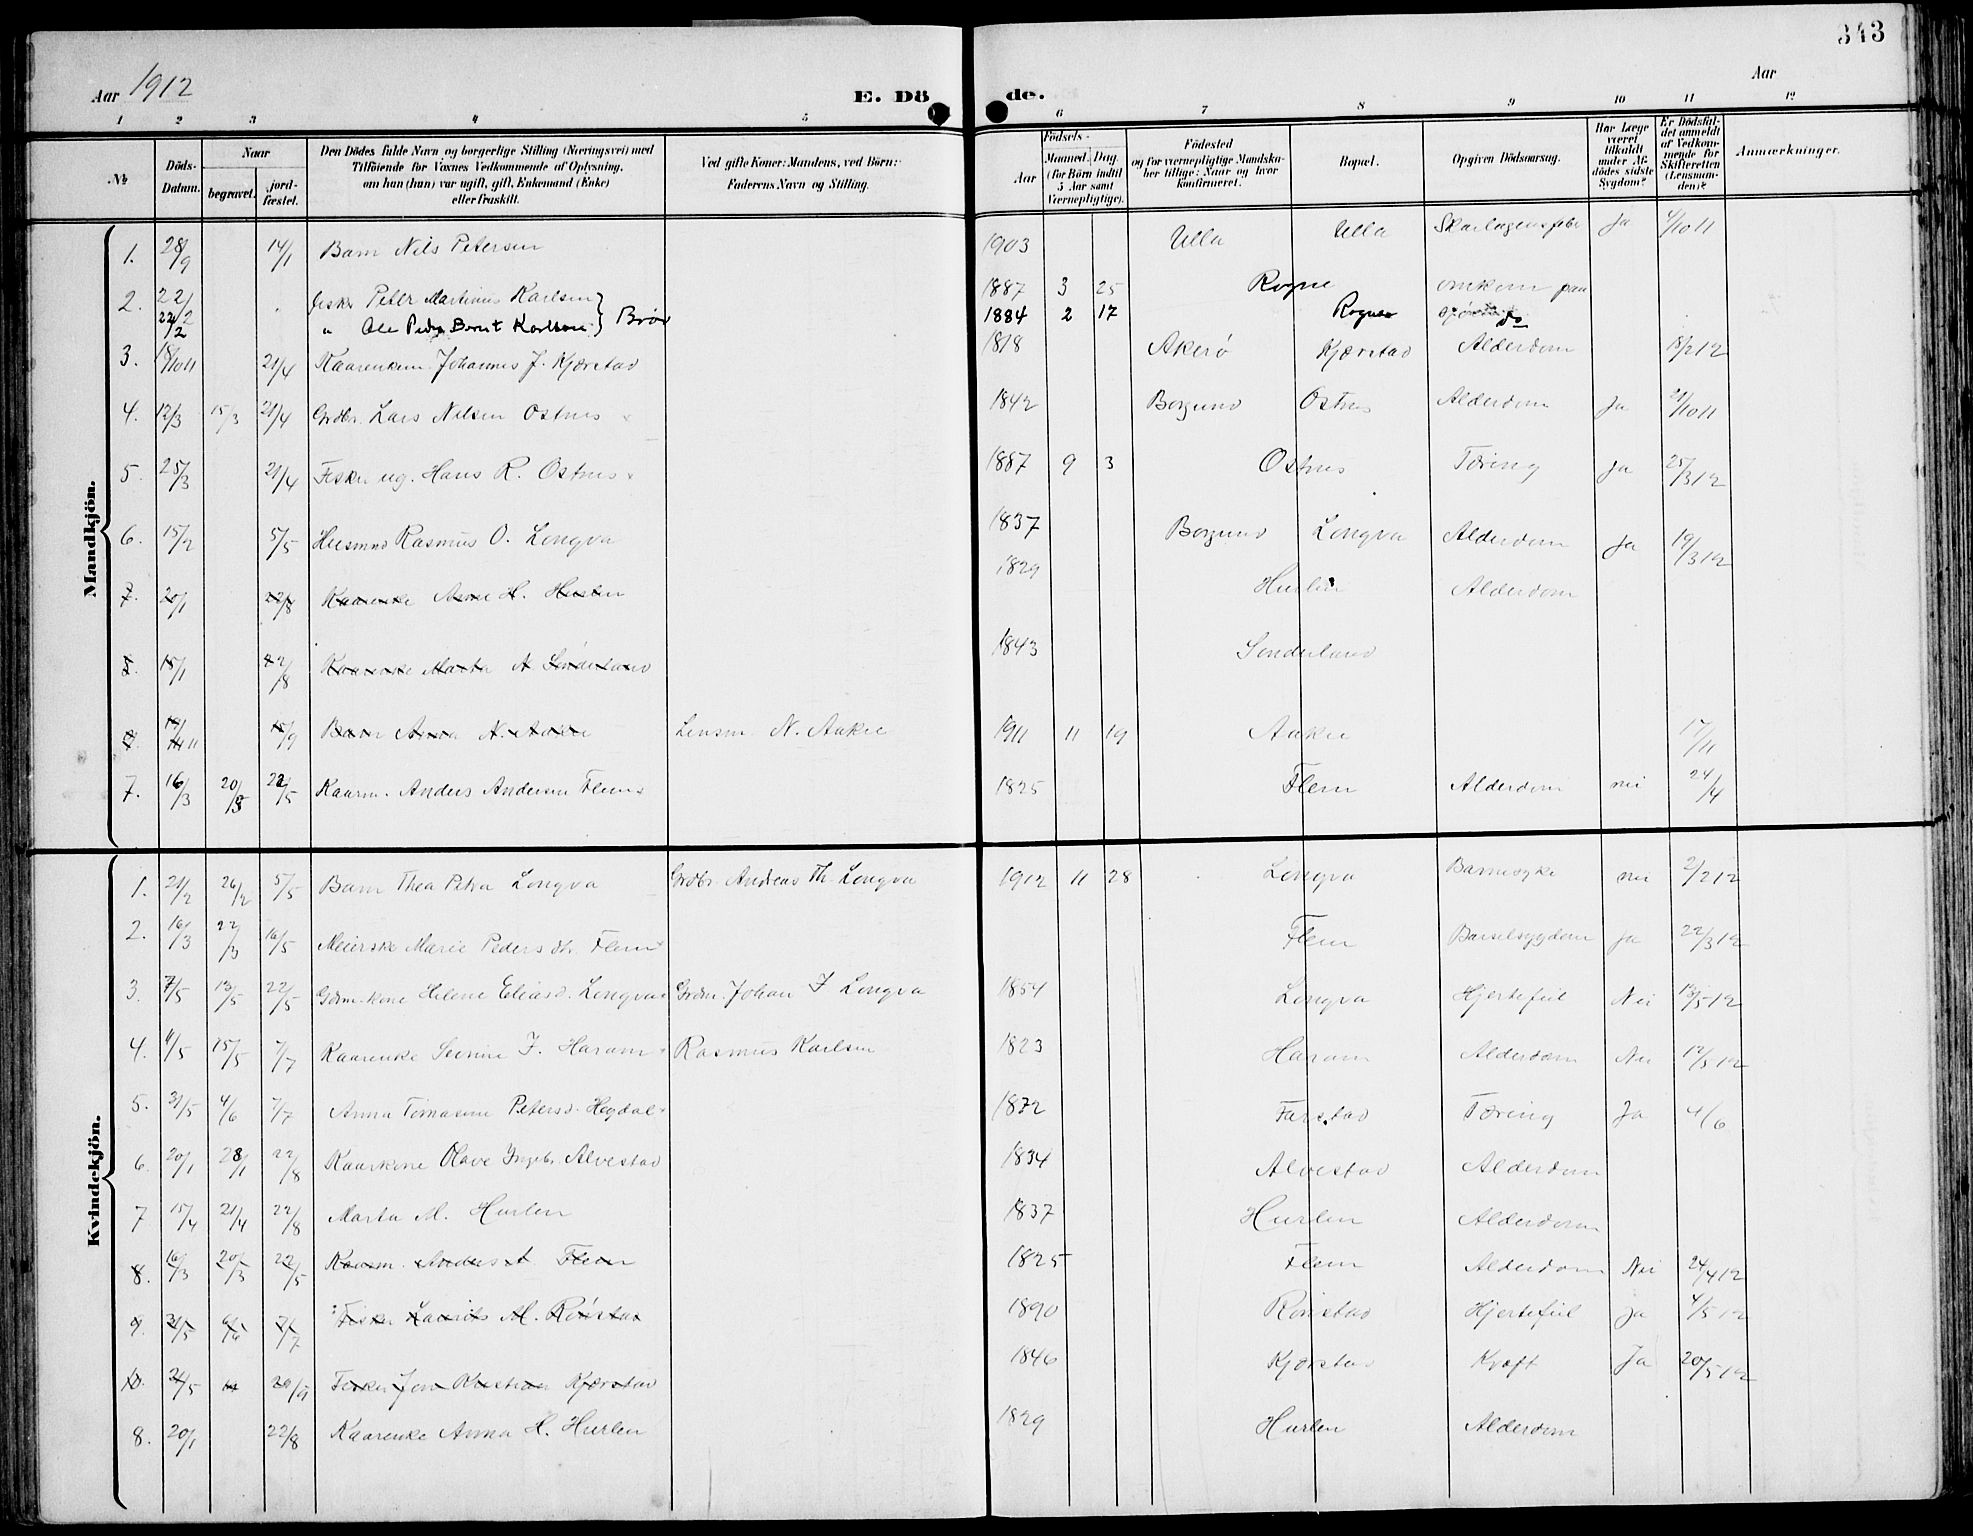 343
Aar 1912
E. Dö
de.
Aar
1 2 3 4 5 6 7 8 9 10 11 12
№
Döds-
Datum.
Naar
begravet.
jord-
fæstet.
Den Dödes fulde Navn og borgerlige Stilling (Næringsvei) med
Tilföiende for Voxnes Vedkommende af Oplysning,
om han (hun) var ugift, gift, Enkemand (Enke)
eller fraskilt.
Ved gifte Koner: Mandens, ved Börn:
Faderens Navn og Stilling.
Födsels-
Aar
Maaned. Dag.
(for Börn indtil
5 Aar samt
Værnepligtige).
Födested
og for værnepligtige Mandska-
ber tillige: Naar og hvor
konfirmeret.
Bopæl.
Opgiven Dödsaarsag.
Har Læge
været
tilkaldt
under Af-
dödes sidste
Sygdom?
Er Dödsfal-
det anmeldt
af Vedkom-
mende for
Skifteretten
(Lensman-
den)?
Anmærkninger.
Mandkjön.
1. 28/9 14/1 Barn Nils Petersen 1903 Ulla Ulla Skarlagensfeber Ja 4/10 11
2. 22/2 Fisker Peter Martinus Karlsen 1887 3 25 Rogne omkom paa
22/2 " Ole Peder Bernt Karlsen } Brør 1884 2 17 Rogne sjøen do
3. 18/10 11 21/4 Kaarenkem. Johannes J. Kjærstad 1818 Akerø Kjærstad Alderdom 18/2 12
4. 12/3 15/3 21/4 Grdbr. Lars Nilsen Ostnes 1842 Borgund Ostnes Alderdom Ja 21/10 11
5. 25/3 21/4 Fisker ug. Hans R. Ostnes 1887 9 3 Ostnes Tæring Ja 25/3 12
6. 15/2 5/5 Husmnd Rasmus O. Longva 1837 Borgund Longva Alderdom Ja 19/3 12
7. 20/1 22/8 Kaarenke Anne H. Hurlen 1829 Hurlen Alderdom
8. 15/1 22/8 Kaarenke Marta A Sønderland 1843 Sønderland
15/9 Barn Anna N. Aakre Lensm. N. Aakre 1911 11 19 Aakre 17/11
7. 16/3 20/3 22/5 Kaarm. Anders Andersen Flem 1825 Flem Alderdom nei 24/4
Kvindekjön.
1. 21/2 26/2 5/5 Barn Thea Petra Longva Grdbr. Andreas Th. Longva 1912 11 28 Longva Barnesyke nei 2/2 12
2. 16/3 22/3 16/5 Meierske Marie Pedersdtr. Flem Flem Barselsygdom Ja 22/3 12
3. 7/5 13/5 22/5 Gdrm.kone Helene Eliasd. Longva Grdm. Johan I Longva 1854 Longva Hjertefeil Nei 13/5 12
4. 11/5 15/5 7/7 Kaarenke Sevrine J. Haram Rasmus Karlsen 1823 Haram Alderdom Nei 12/5 12
5. 31/5 4/6 7/7 Anna Tomasine Petersd. Hegdal 1872 Farstad Tæring Ja 4/6
6. 20/1 28/1 22/8 Kaarkone Olave Ingebr. Alvestad 1834 Alvestad Alderdom
7 15/4 21/4 22/8 Marta M. Hurlen 1837 Hurlen Alderdom
8. 16/3 20/3 22/5 Kaarm. Anders A. Flem 1825 Flem Alderdom Nei 24/4 12
9. 31/5 6/6 7/7 Fisker Laurits M. Rønstad 1890 Rønstad Hjertefeil Ja 4/5 12
10. 24/5 20/9 Fisker Jon Kristian Kjærstad 1846 Kjærstad Kræft Ja 20/5 12
8. 20/1 22/8 Kaarenke Anna H. Hurlen 1829 Hurlen Alderdom